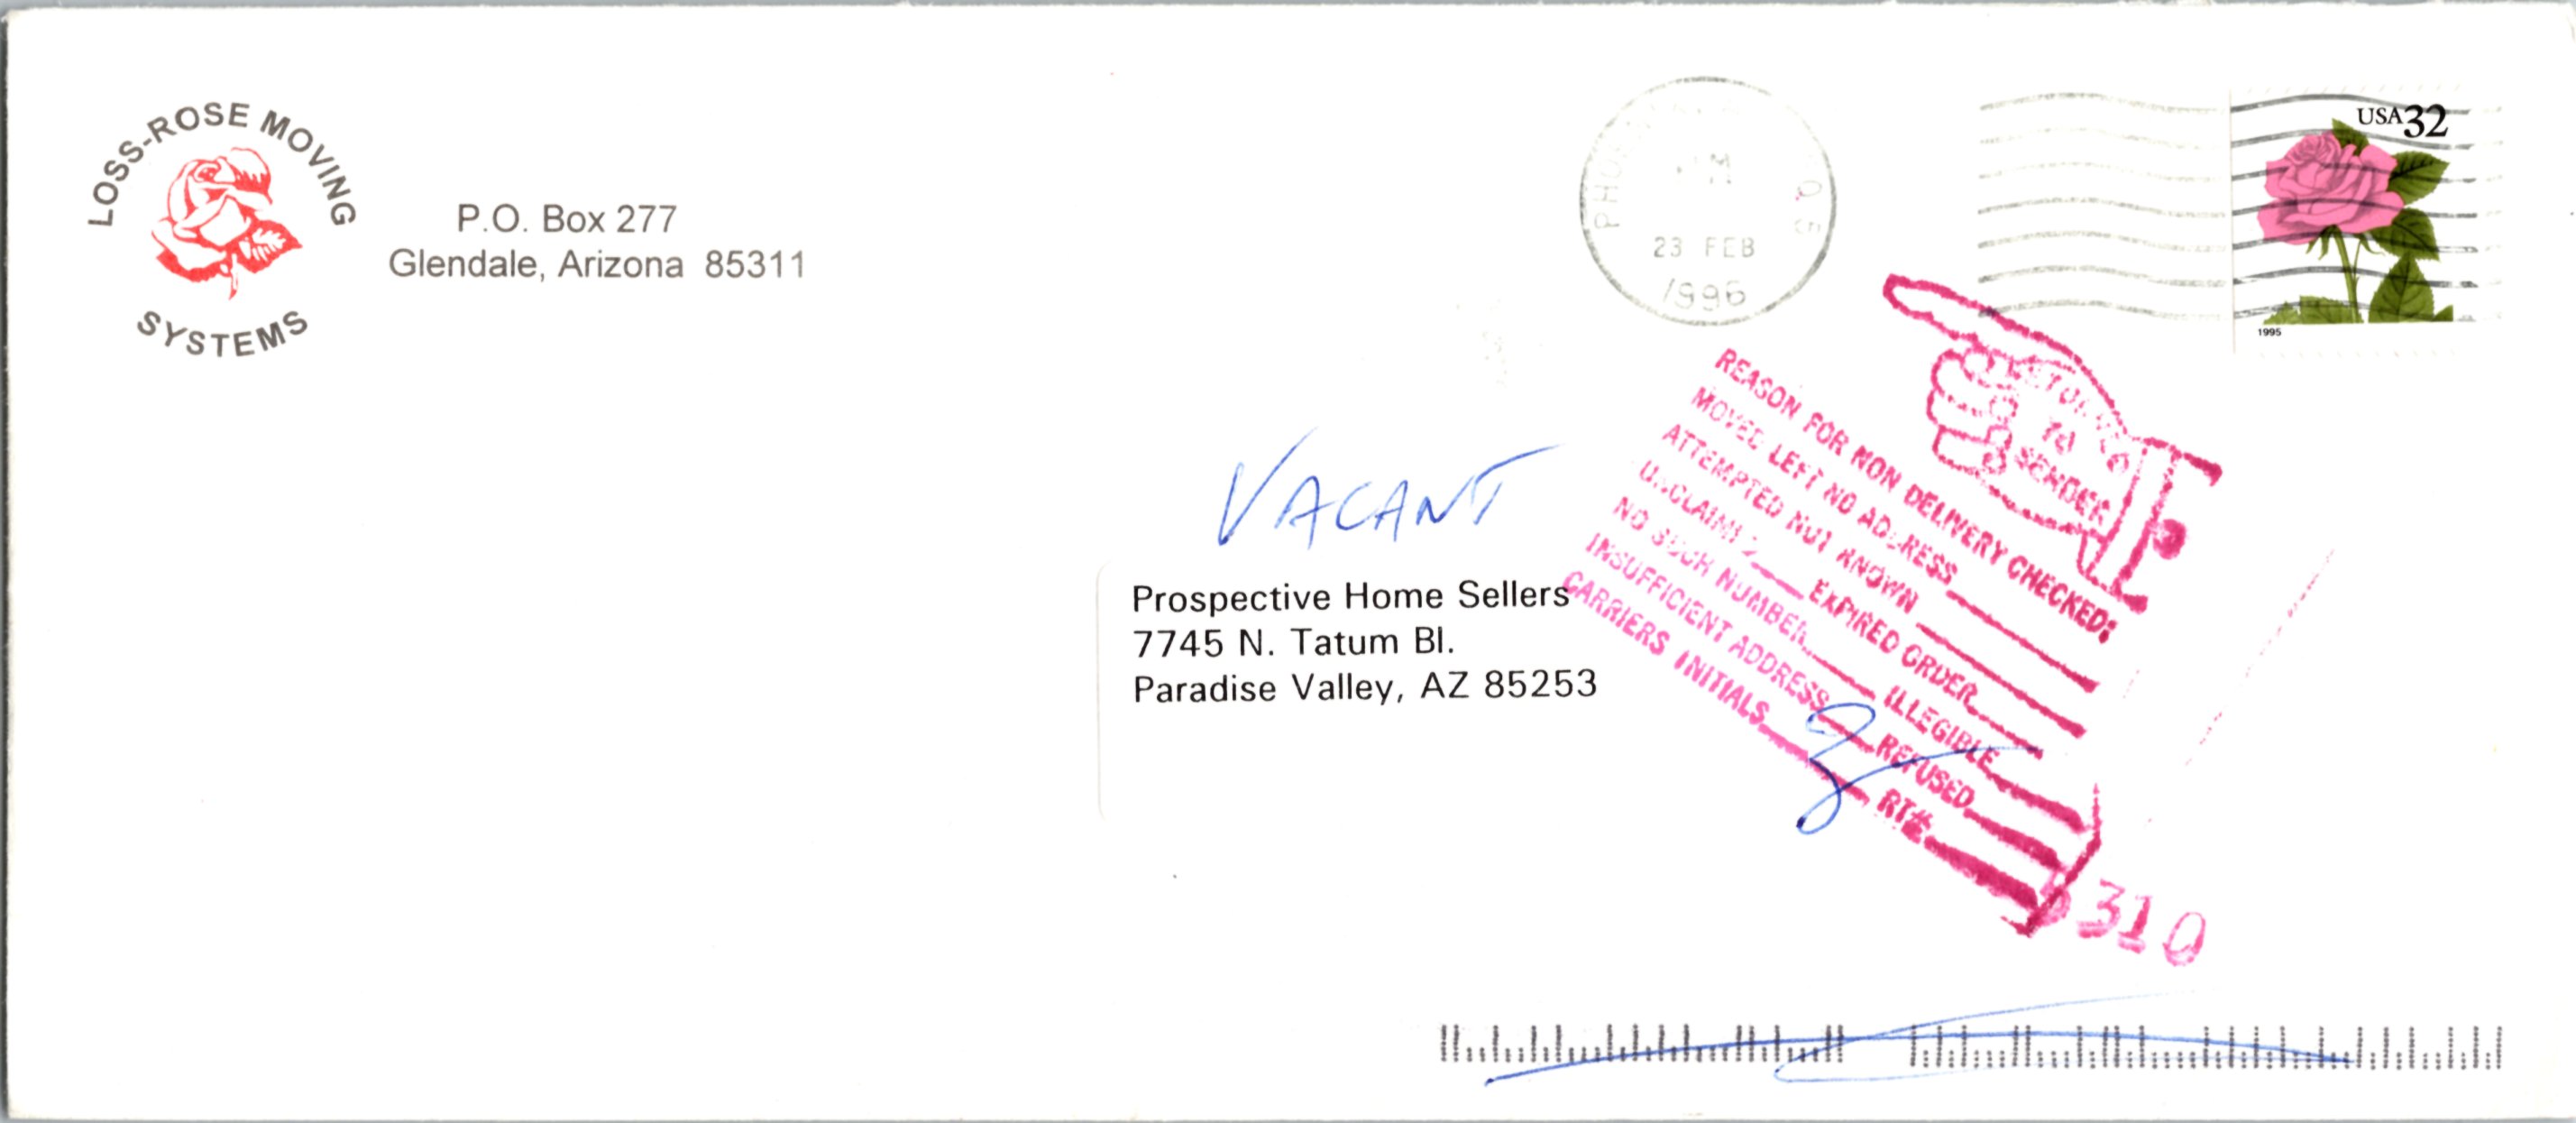 LOSS-ROSE MOVING
SYSTEMS
P.O. Box 277
Glendale, Arizona 85311
23 FEB
1996
USA 32
1995
TO
SENDER
REASON FOR NON DELIVERY CHECKED:
MOVED LEFT NO ADDRESS
ATTEMPTED NOT KNOWN
UNCLAIMED EXPIRED ORDER
NO SUCH NUMBER ILLEGIBLE
INSUFFICIENT ADDRESS REFUSED
CARRIERS INITIALS RT#
310
VACANT
Prospective Home Sellers
7745 N. Tatum Bl.
Paradise Valley, AZ 85253